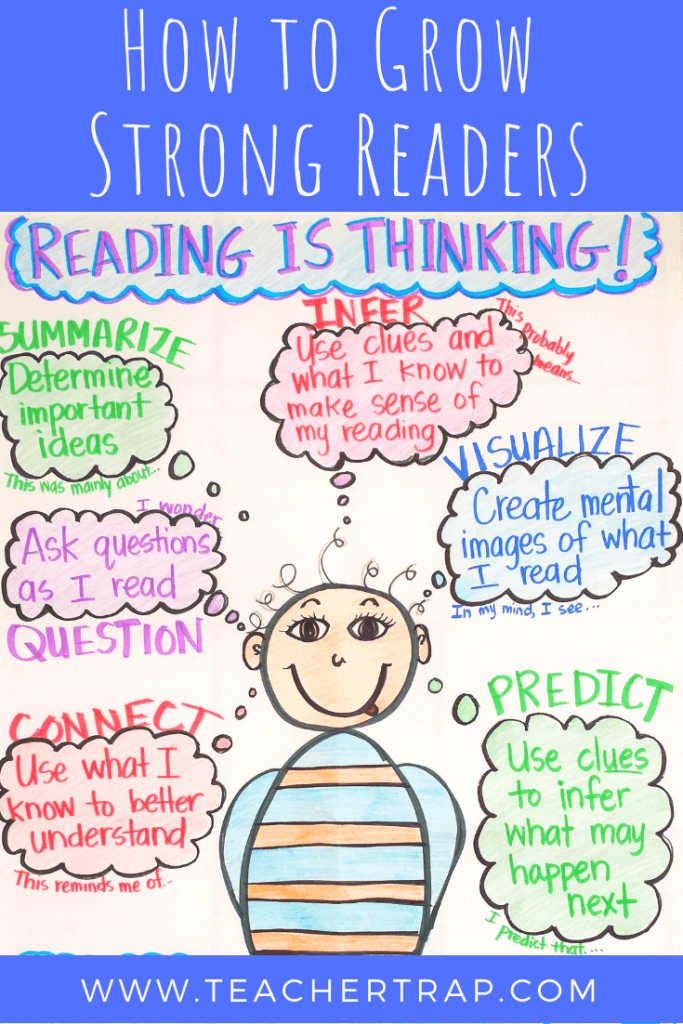 HOW TO GROW
STRONG READERS
READING IS THINKING!
SUMMARIZE
Determine
important
ideas
This was mainly about...
INFER
Use clues and
what I know to
make sense of
my reading
This probably
means...
VISUALIZE
Create mental
images of what
I read
In my mind, I see...
I wonder
Ask questions
as I read
QUESTION
CONNECT
Use what I
know to better
understand
This reminds me of...
PREDICT
Use clues
to infer
what may
happen
next
I predict that....
WWW.TEACHERTRAP.COM